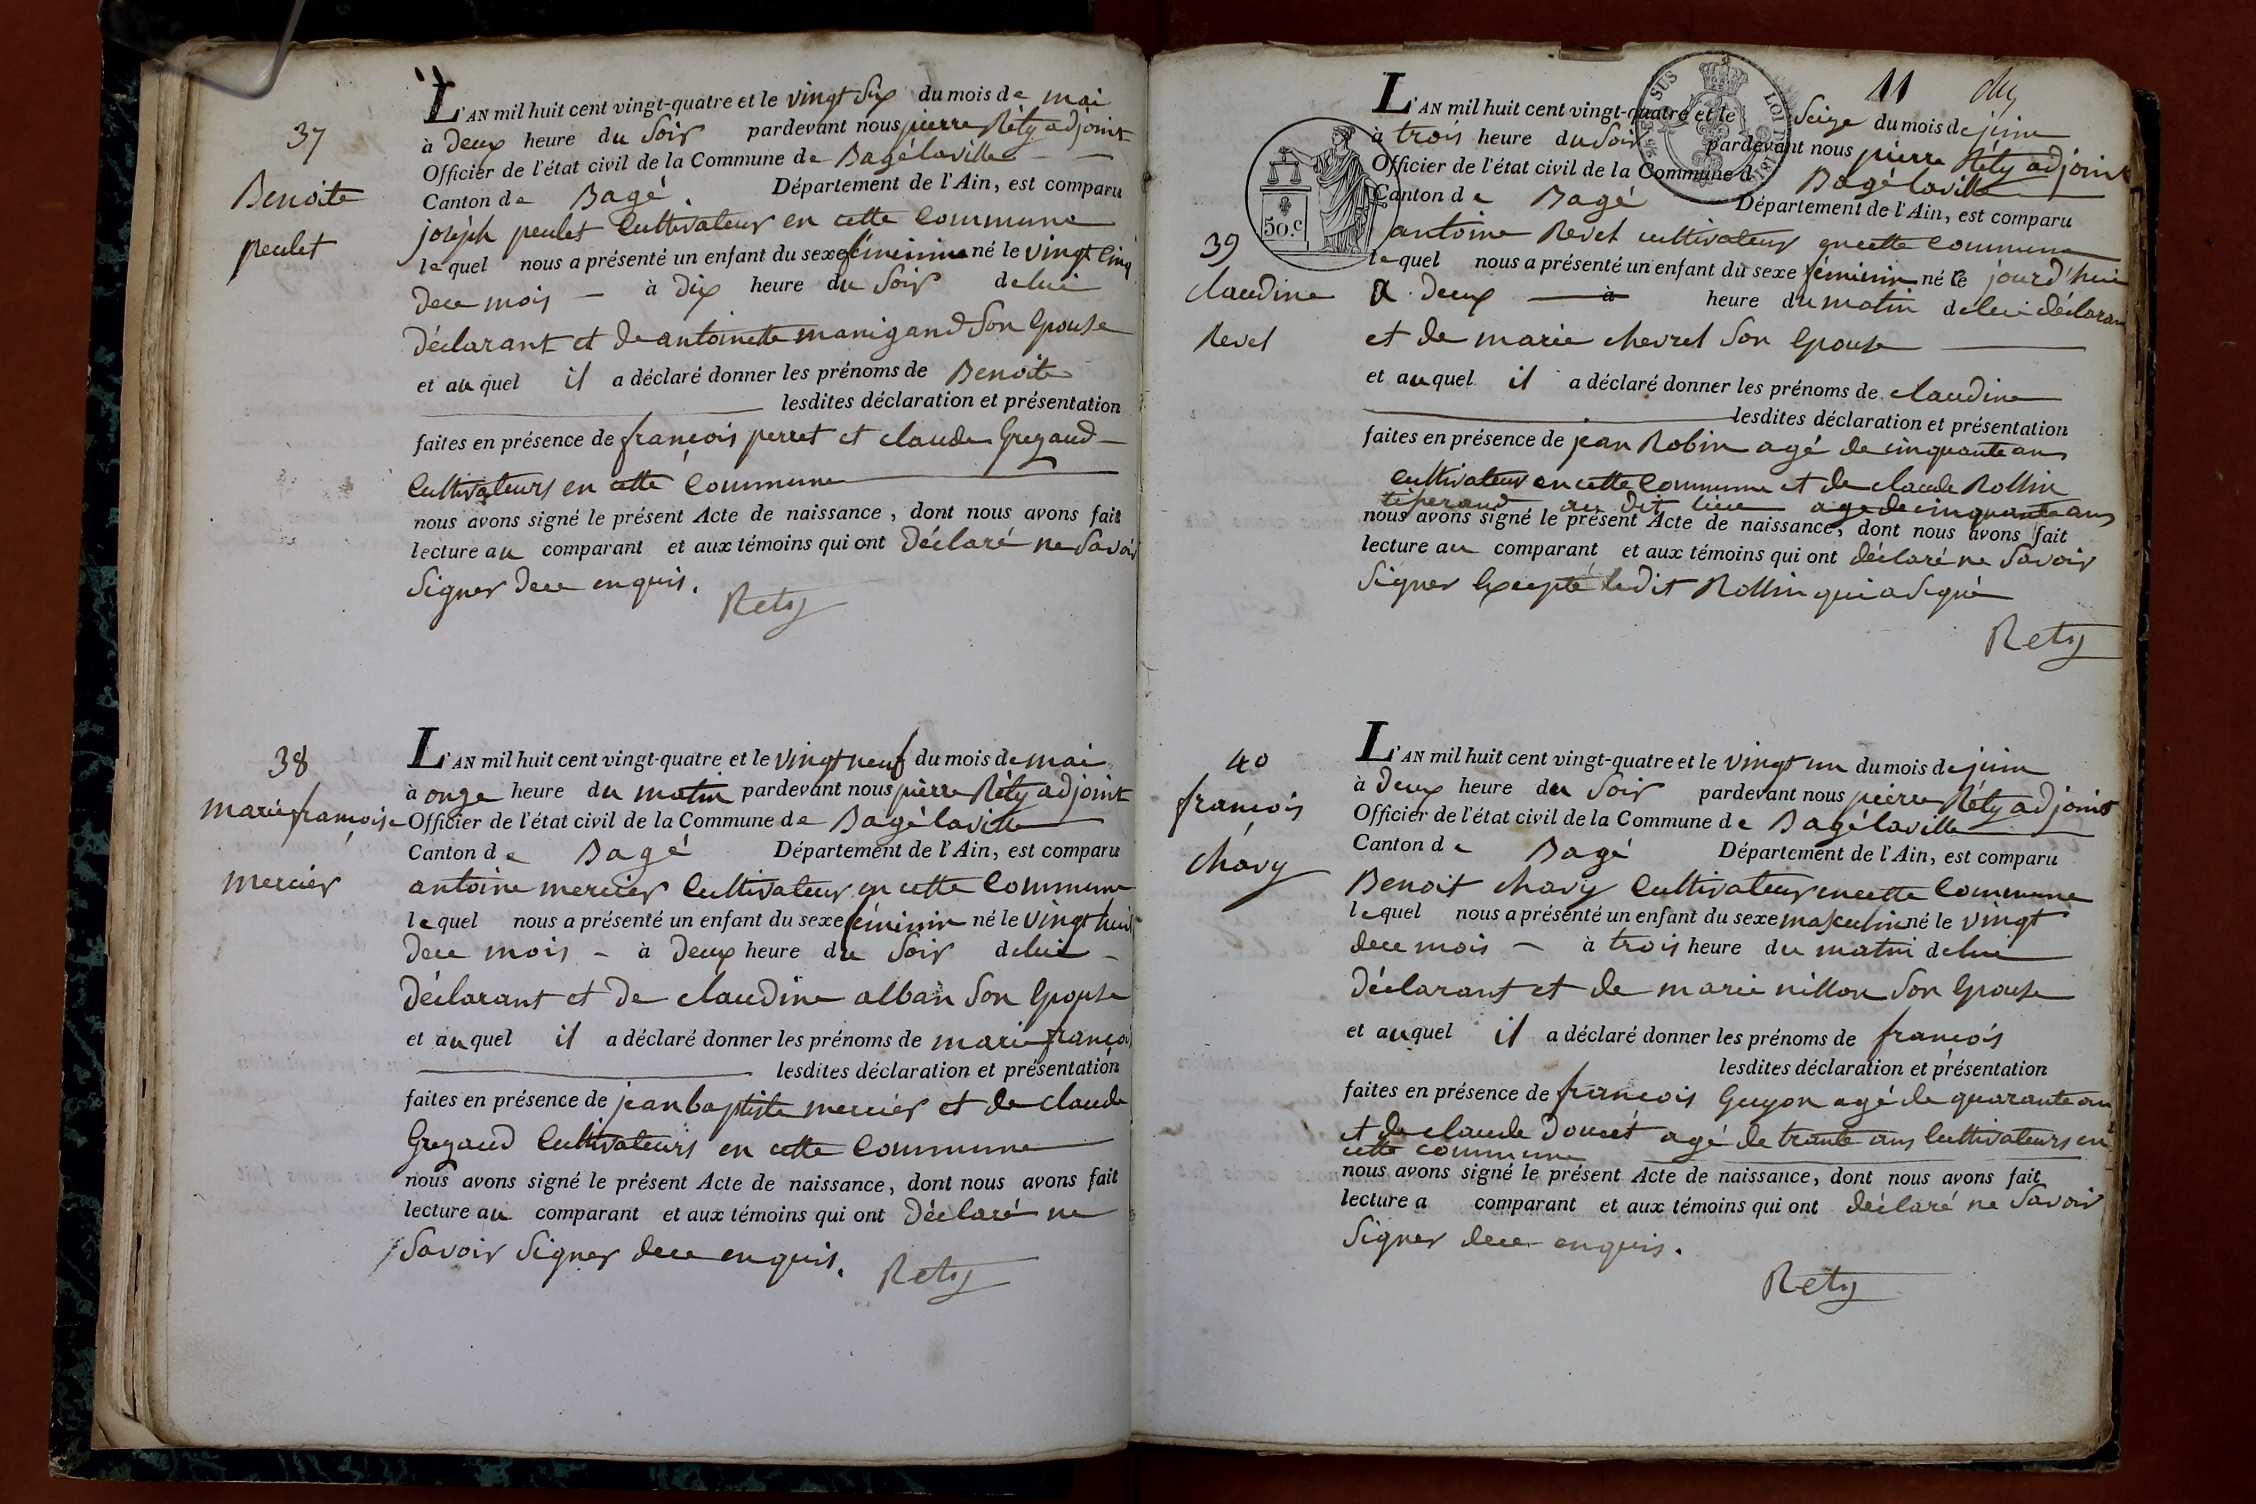 37
Benoite
peulet
L'AN mil huit cent vingt-quatre et le vingt six du mois de mai
à deux heure du soir pardevant nous pierre Réty adjoint
Officier de l'état civil de la Commune de Bagé laville
Canton de Bagé Département de l'Ain, est comparu
joseph peulet Cultivateur en cette Commune
lequel nous a présenté un enfant du sexe féminin né le vingt Cinq
dece mois à dix heure du soir delui
déclarant et de antoinette manigand son Epouse
et auquel il a déclaré donner les prénoms de Benoite
lesdites déclaration et présentation
faites en présence de françois perret et claude Gregaud
Cultivateurs en cette Commune
nous avons signé le présent Acte de naissance, dont nous avons fait
lecture au comparant et aux témoins qui ont déclaré ne savoir
signer dece enquis.
Rety
38
marie françoise
mercier
L'AN mil huit cent vingt-quatre et le vingt neuf du mois de mai
à onze heure du matin pardevant nous pierre Réty adjoint
Officier de l'état civil de la Commune de Bagé laville
Canton de Bagé Département de l'Ain, est comparu
antoine mercier Cultivateur en cette Commune
lequel nous a présenté un enfant du sexe féminin né le vingt huit
dece mois à deux heure du soir delui
déclarant et de claudine alban son Epouse
et auquel il a déclaré donner les prénoms de marie françoi
lesdites déclaration et présentation
faites en présence de jean baptiste mercier et de claude
Gregaud Cultivateurs en cette Commune
nous avons signé le présent Acte de naissance, dont nous avons fait
lecture au comparant et aux témoins qui ont déclaré ne
savoir signer dece enquis.
Rety
11
SUS LOI DE 1816
50.c
39
claudine
Revel
L'AN mil huit cent vingt-quatre et le Seize du mois de juin
à trois heure du soir pardevant nous pierre Réty adjoint
Officier de l'état civil de la Commune d Bagé laville
Canton de Bagé Département de l'Ain, est comparu
antoine Revel cultivateur en cette Commune
lequel nous a présenté un enfant du sexe féminin né ce jourd'hui
a deux à heure du matin delui déclarant
et de marie chevrel son Epouse
et auquel il a déclaré donner les prénoms de claudine
lesdites déclaration et présentation
faites en présence de jean Robin agé de cinquante ans
cultivateur en cette Commune et de claude Rollin
tiserand au dit lieu age de cinquante ans
nous avons signé le présent Acte de naissance, dont nous avons fait
lecture au comparant et aux témoins qui ont déclaré ne savoir
signer Excepté ledit Rollin qui a signé
Rety
40
françois
chavy
L'AN mil huit cent vingt-quatre et le vingt un du mois de juin
à deux heure du soir pardevant nous pierre Réty adjoint
Officier de l'état civil de la Commune de Bagé laville
Canton de Bagé Département de l'Ain, est comparu
Benoit chavy Cultivateur en cette Commune
lequel nous a présenté un enfant du sexe masculin né le vingt
dece mois à trois heure du matin delui
déclarant et de marie nillon son Epouse
et auquel il a déclaré donner les prénoms de françois
lesdites déclaration et présentation
faites en présence de françois Guyon agé de quarante an
et de claude doucet agé de trante ans Cultivateurs en
cette commune
nous avons signé le présent Acte de naissance, dont nous avons fait
lecture a comparant et aux témoins qui ont déclaré ne savoir
signer dece enquis.
Rety